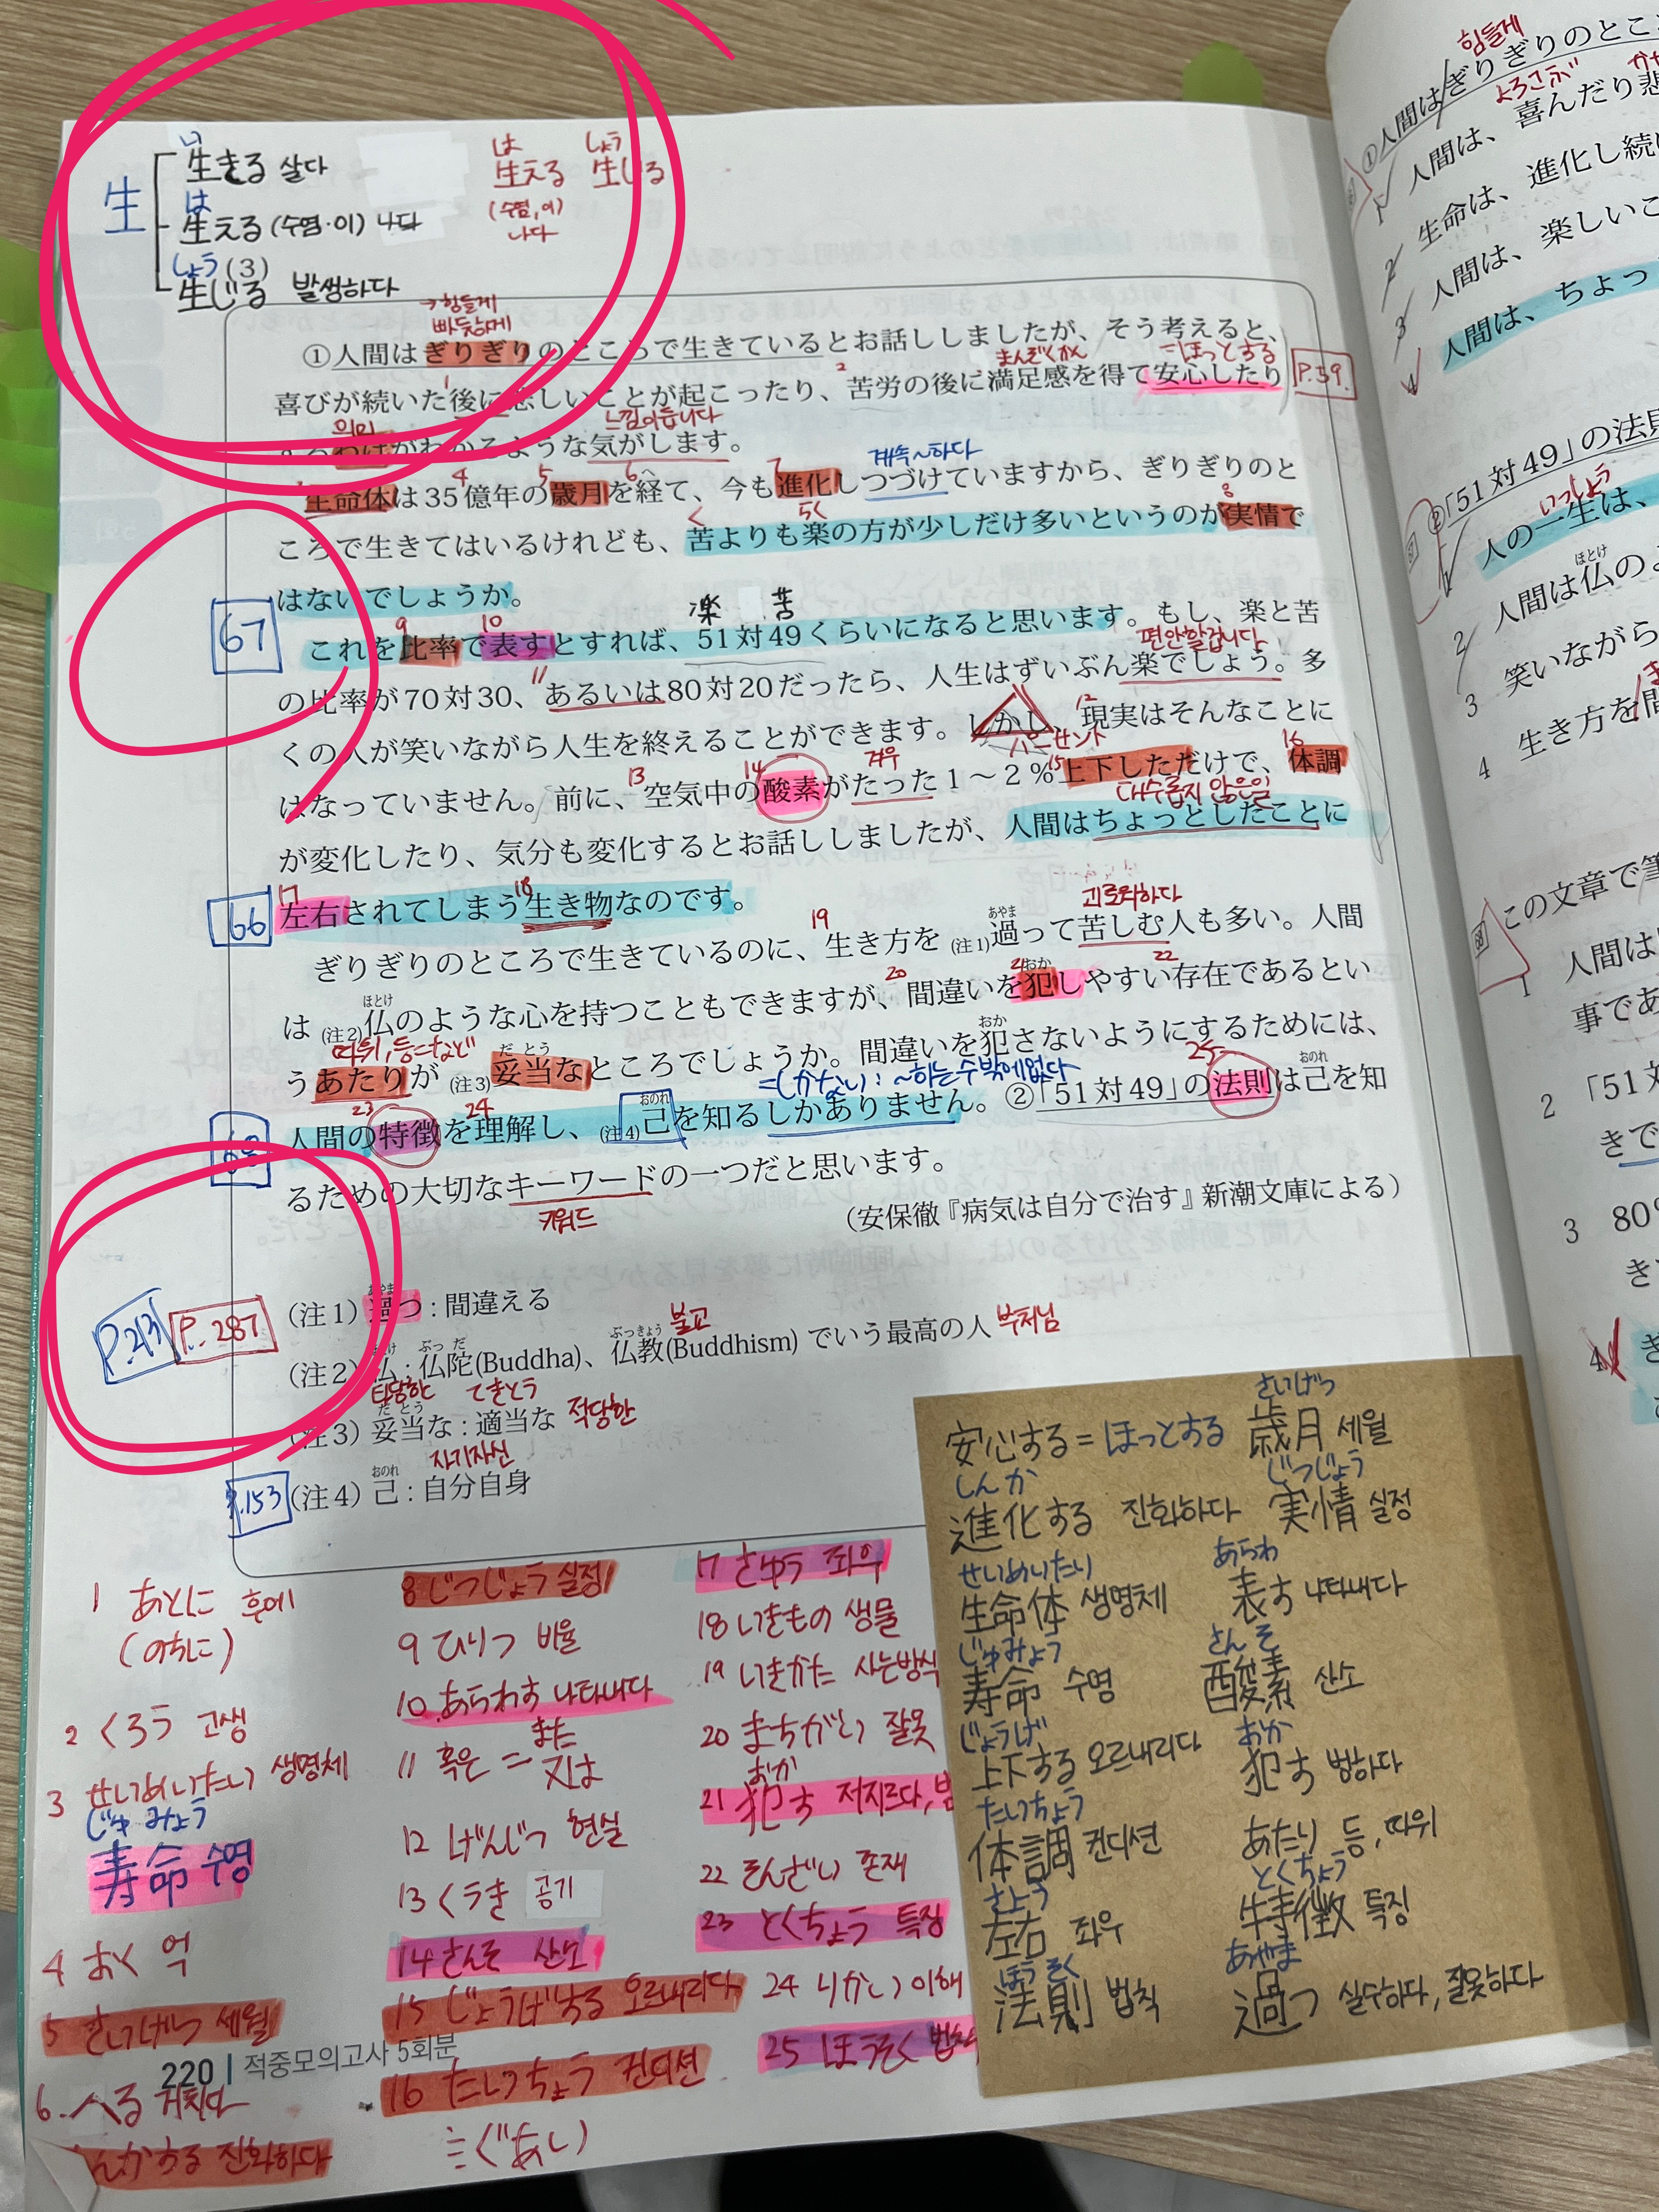 い
生きる 살다
は
生 生える (수염·이) 나다
しょう (3)
生じる 발생하다
は しょう
生える 生じる
(수염, 이)
나다
→힘들게
빠듯하게
①人間はぎりぎりのところで生きているとお話ししましたが、そう考えると、
1 2 まんぞくかん =ほっとする
喜びが続いた後に悲しいことが起こったり、苦労の後に満足感を得て安心したり
P.39.
의미 느낌이듭니다
わけがわかるような気がします。
4 5 6 へ 7 계속~하다
生命体は35億年の歳月を経て、今も進化しつづけていますから、ぎりぎりのと
く らく 8
ころで生きてはいるけれども、苦よりも楽の方が少しだけ多いというのが実情で
はないでしょうか。
楽 苦
67
9 10
これを比率で表すとすれば、51対49くらいになると思います。もし、楽と苦
11 편안할겁니다
の比率が70対30、あるいは80対20だったら、人生はずいぶん楽でしょう。多
12
くの人が笑いながら人生を終えることができます。しかし、現実はそんなことに
13 14 겨우 パーセント 15 16
はなっていません。前に、空気中の酸素がたった1～2%上下しただけで、体調
대수롭지 않은일
が変化したり、気分も変化するとお話ししましたが、人間はちょっとしたことに
66
17 18
左右されてしまう生き物なのです。
19 あやま 괴로워하다
ぎりぎりのところで生きているのに、生き方を(注1)過って苦しむ人も多い。人間
ほとけ 20 21 おか 22
は(注2)仏のような心を持つこともできますが、間違いを犯しやすい存在であるとい
따위, 등=など だとう おか
うあたりが(注3)妥当なところでしょうか。間違いを犯さないようにするためには、
=しかない: ~하는수밖에없다
68
23 24 おのれ 25 おのれ
人間の特徴を理解し、(注4)己を知るしかありません。②「51対49」の法則は己を知
るための大切なキーワードの一つだと思います。
키워드
(安保徹『病気は自分で治す』新潮文庫による)
P.213 P.287
あやま
(注1) 過つ : 間違える
ぶっだ ぶっきょう 불교
(注2) 仏 : 仏陀(Buddha)、仏教(Buddhism) でいう最高の人 부처님
타당한 だとう てきとう
(注3) 妥当な : 適当な 적당한
자기자신
おのれ
P.153 (注4) 己 : 自分自身
1 あとに 후에
(のちに)
2 くろう 고생
3 せいめいたい 생명체
じゅみょう
寿命 수명
4 おく 억
5 さいげつ 세월
6. へる 거치다
しんかする 진화하다
8 じつじょう 실정
9 ひりつ 비율
10. あらわす 나타내다
また
11 혹은 = 又は
12 げんじつ 현실
13 くうき 공기
14 さんそ 산소
15 じょうげする 오르내리다
16 たいちょう 컨디션
ぐあい)
17 さゆう 좌우
18 いきもの 생물
19 いきかた 사는방식
20 まちがい 잘못
おか
21 犯す 저지르다,
22 そんざい 존재
23 とくちょう 특징
24 りかい 이해
25 ほうそく 법칙
220 | 적중모의고사 5회분
安心する = ほっとする
しんか
進化する 진화하다
せいめいたい
生命体 생명체
じゅみょう
寿命 수명
じょうげ
上下する 오르내리다
たいちょう
体調 컨디션
さゆう
左右 좌우
ほうそく
法則 법칙
さいげつ
歳月 세월
じつじょう
実情 실정
あらわ
表す 나타내다
さんそ
酸素 산소
おか
犯す 범하다
あたり 등, 따위
とくちょう
特徴 특징
あやま
過つ 실수하다, 잘못하다
힘들게
①人間はぎりぎりのとこ
よろこぶ
1 人間は、喜んだり悲
2 生命は、進化し続け
3 人間は、楽しいこ
4 人間は、ちょっ
②「51対49」の法則
いっしょう
1 人の一生は、
ほとけ
2 人間は仏のよ
3 笑いながら
4 生き方を間
68 この文章で筆
1 人間は
事であ
2 「51対
きで
3 80%
き
4 ぎ